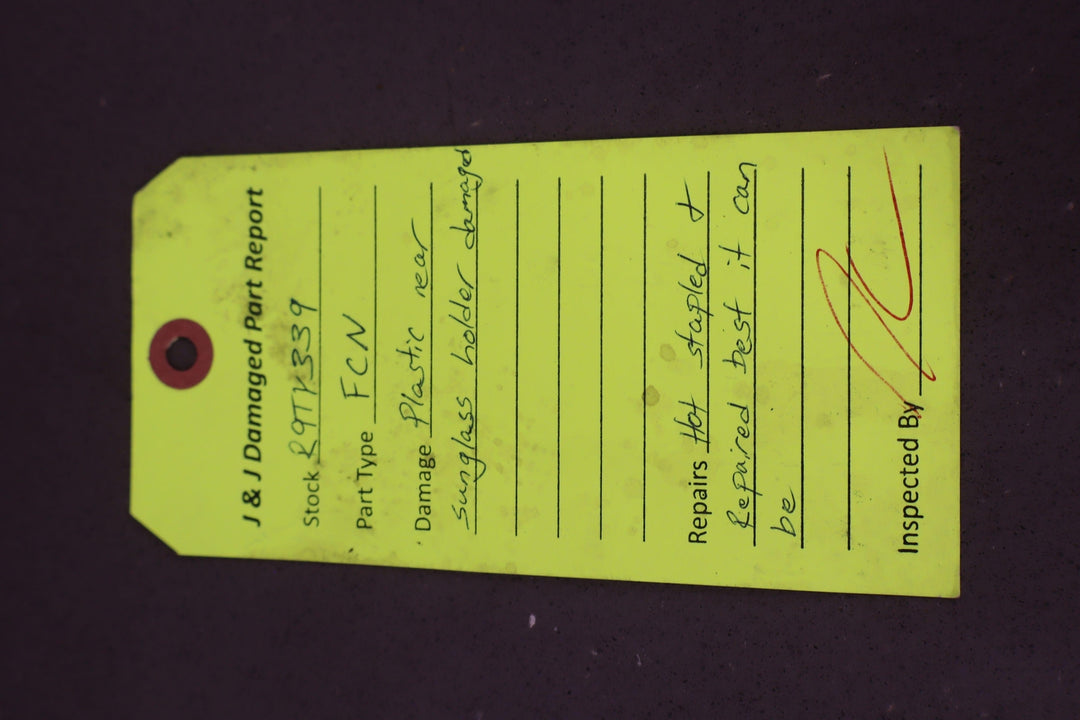 J & J Damaged Part Report
Stock R9TY339
Part Type FCN
Damage Plastic near
sunglass holder damaged
Repairs Hot stapled &
Repaired best it can
be
Inspected By